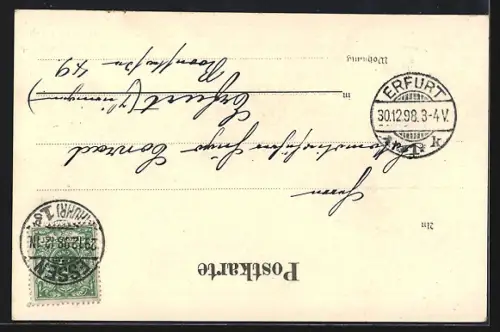 Postkarte
An
Herrn
Hugo Conrad
in Erfurt (Thüringen)
Wohnung
Roonstraße 49
ESSEN
29.12.98.12-1N.
(RUHR) 1.
ERFURT
30.12.98.3-4V.
1
k